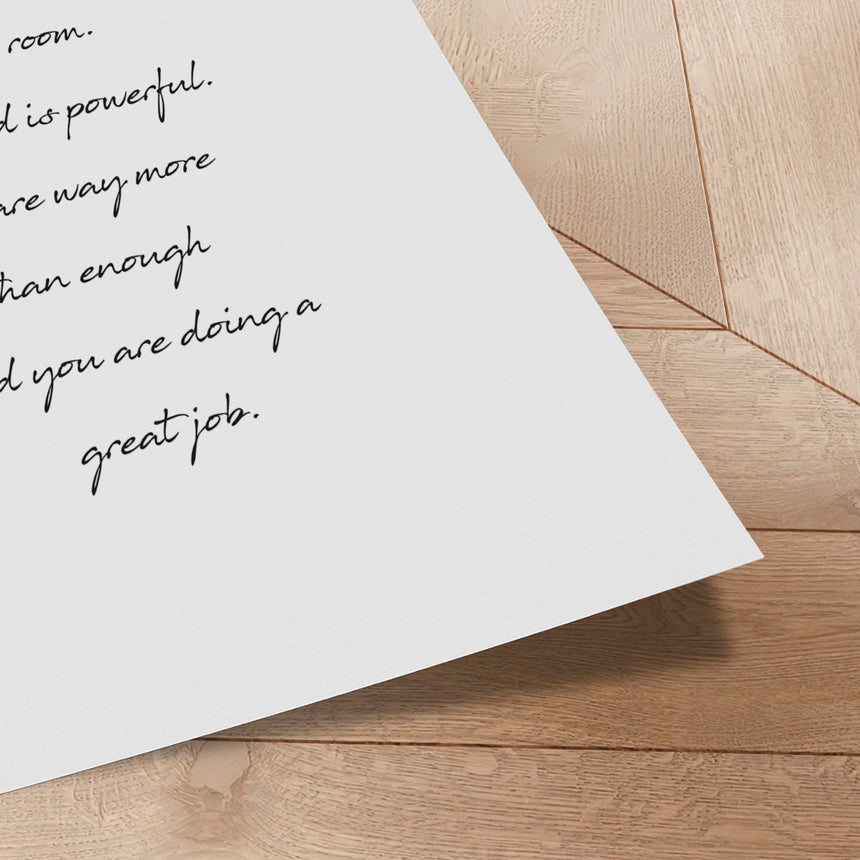 room.
d is powerful.
are way more
than enough
d you are doing a
great job.